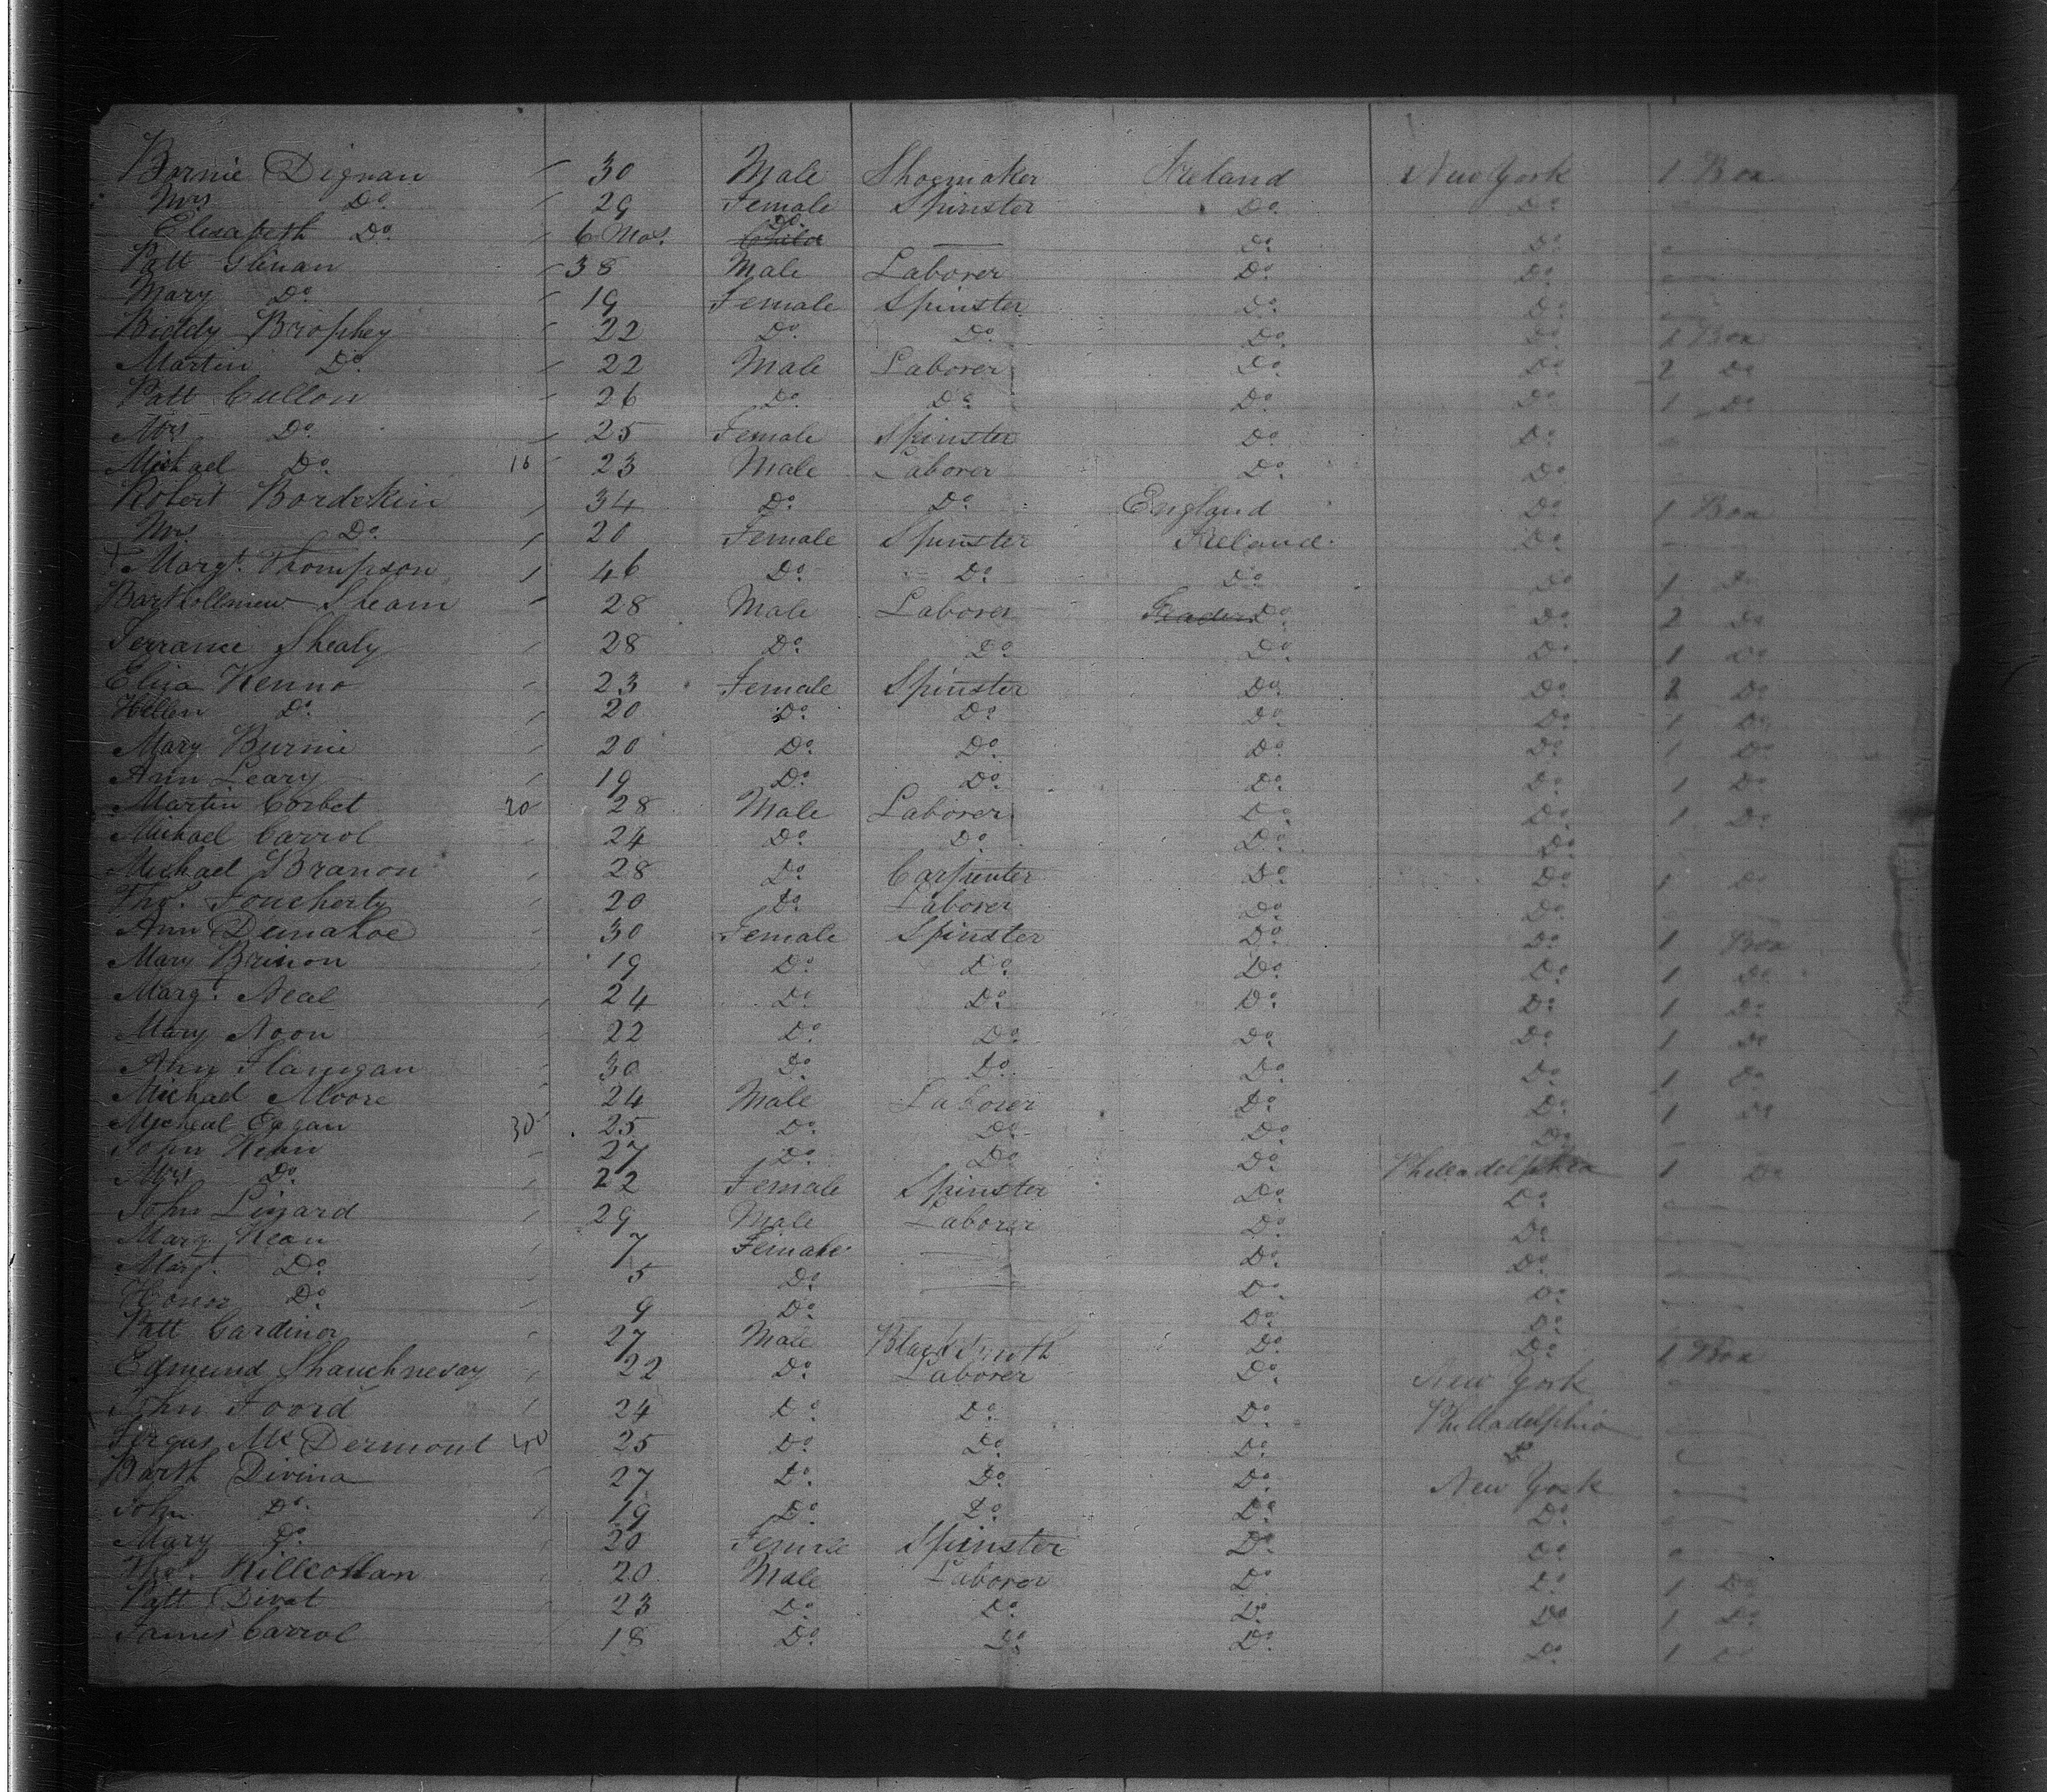 Bernie Dignan 30 Male Shoemaker Ireland New York 1 Box
Mrs Do. 29 Female Spinster Do. Do.
Elisabeth Do. 6 Mos. Child Do. Do. Do.
Patt Glinan 38 Male Laborer Do. Do.
Mary Do. 19 Female Spinster Do. Do.
Biddy Brophey 22 Do. Do. Do. Do. 1 Box
Martin Do. 22 Male Laborer Do. Do. 2 Do
Patt Cullon 26 Do. Do. Do. Do. 1 Do
Mrs Do. 25 Female Spinster Do. Do.
Michael Do. 23 Male Laborer Do. Do.
Robert Bordekin 34 Do. Do. England Do. 1 Box
Mrs. Do. 20 Female Spinster Ireland. Do.
Margt. Thompson 46 Do. Do. Do. Do. 1 Do.
Barthollmew Sheam 28 Male Laborer Do. Do. 2 Do
Terrance Shealy 28 Do. Do. Do. Do. 1 Do
Eliza Kenno 23 Female Spinster Do. Do. 2 Do
Hellen Do. 20 Do. Do. Do. Do. 1 Do.
Mary Burnie 20 Do. Do. Do. Do. 1 Do.
Ann Leary 19 Do. Do. Do. Do. 1 Do
Martin Corbet 20 28 Male Laborer Do. Do. 1 Do.
Michael Carrol 24 Do. Do. Do. Do.
Michael Branon 28 Do. Carpenter Do. Do. 1 Do
Thos. Foucherty 20 Do. Laborer Do. Do.
Ann Dunahoe 30 Female Spinster Do. Do. 1 Box
Mary Brinon 19 Do. Do. Do. Do. 1 Do.
Margt. Neal 24 Do. Do. Do. Do. 1 Do.
Mary Noon 22 Do. Do. Do. Do. 1 Do
Ann Flanigan 30 Do. Do. Do. Do. 1 Do.
Michael Moore 24 Male Laborer Do. Do. 1 Do
Micheal Eagan 30 25 Do. Do. Do. Do.
John Kean 27 Do. Do. Do. Philladelphia 1 Do
Mrs Do. 22 Female Spinster Do. Do.
John Linard 29 Male Laborer Do. Do.
Mary Kean 7 Female Do. Do.
Margt. Do. 5 Do. Do. Do.
Honor Do. 9 Do. Do. Do.
Patt Gardinor 27 Male Blacksmith Do. Do. 1 Box
Edmund Shauchnesay 22 Do. Laborer Do. New York
John Foord 24 Do. Do. Do. Philladelphia
Fergus Mc Dermont 40 25 Do. Do. Do. Do
Barth Divina 27 Do. Do. Do. New York
John Do. 19 Do. Do. Do. Do.
Mary Do. 20 Female Spinster Do. Do.
Thos. Killcollan 20 Male Laborer Do. Do. 1 Do
Patt Divat 23 Do. Do. Do. Do 1 Do.
James Carrol 18 Do. Do. Do. Do. 1 Do